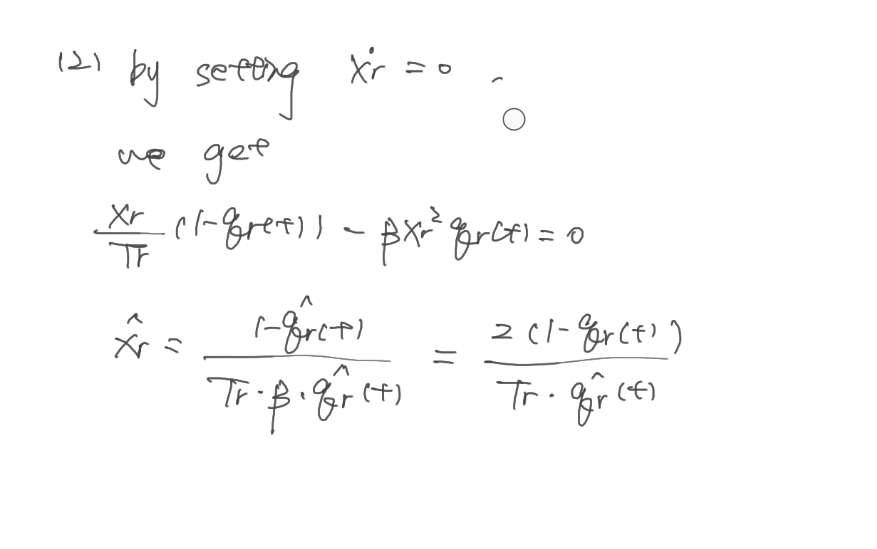 (2) by setting ẋr = 0
we get
xr/Tr (1-qr(t)) - βxr² qr(t) = 0
x̂r = (1-q̂r(t))/(Tr·β·q̂r(t)) = 2(1-qr(t))/(Tr·q̂r(t))